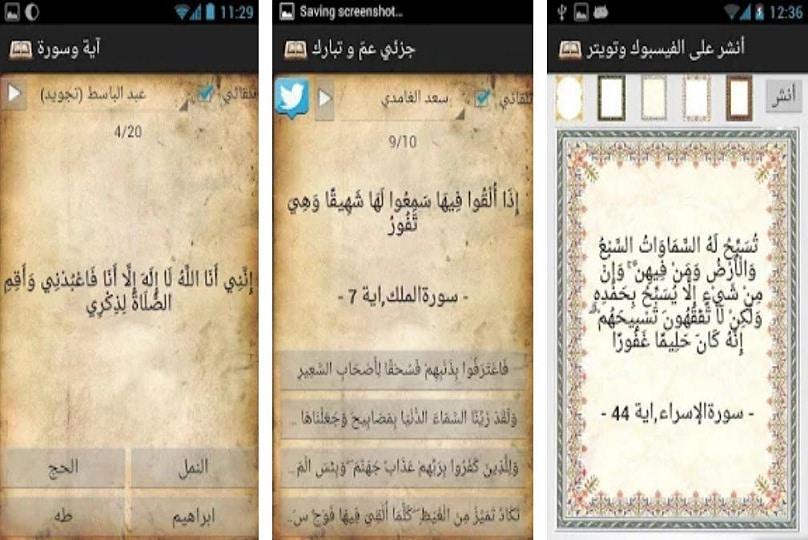 11:29
آية وسورة
تلقائي
عبد الباسط (تجويد)
4/20
إِنَّنِي أَنَا اللَّهُ لَا إِلَٰهَ إِلَّا أَنَا فَاعْبُدْنِي وَأَقِمِ
الصَّلَاةَ لِذِكْرِي
النمل
الحج
ابراهيم
طه
Saving screenshot...
جزئي عمّ و تبارك
تلقائي
سعد الغامدي
9/10
إِذَا أُلْقُوا فِيهَا سَمِعُوا لَهَا شَهِيقًا وَهِيَ
تَفُورُ
- سورةالملك,اية 7 -
فَاعْتَرَفُوا بِذَنْبِهِمْ فَسُحْقًا لِأَصْحَابِ السَّعِيرِ
وَلَقَدْ زَيَّنَّا السَّمَاءَ الدُّنْيَا بِمَصَابِيحَ وَجَعَلْنَاهَا ..
وَلِلَّذِينَ كَفَرُوا بِرَبِّهِمْ عَذَابُ جَهَنَّمَ ۖ وَبِئْسَ الْمَ..
تَكَادُ تَمَيَّزُ مِنَ الْغَيْظِ ۖ كُلَّمَا أُلْقِيَ فِيهَا فَوْجٌ سَ..
12:36
أنشر على الفيسبوك وتويتر
أنشر
تُسَبِّحُ لَهُ السَّمَاوَاتُ السَّبْعُ
وَالْأَرْضُ وَمَنْ فِيهِنَّ ۚ وَإِنْ
مِنْ شَيْءٍ إِلَّا يُسَبِّحُ بِحَمْدِهِ
وَلَٰكِنْ لَا تَفْقَهُونَ تَسْبِيحَهُمْ ۗ
إِنَّهُ كَانَ حَلِيمًا غَفُورًا
- سورةالإسراء,اية 44 -